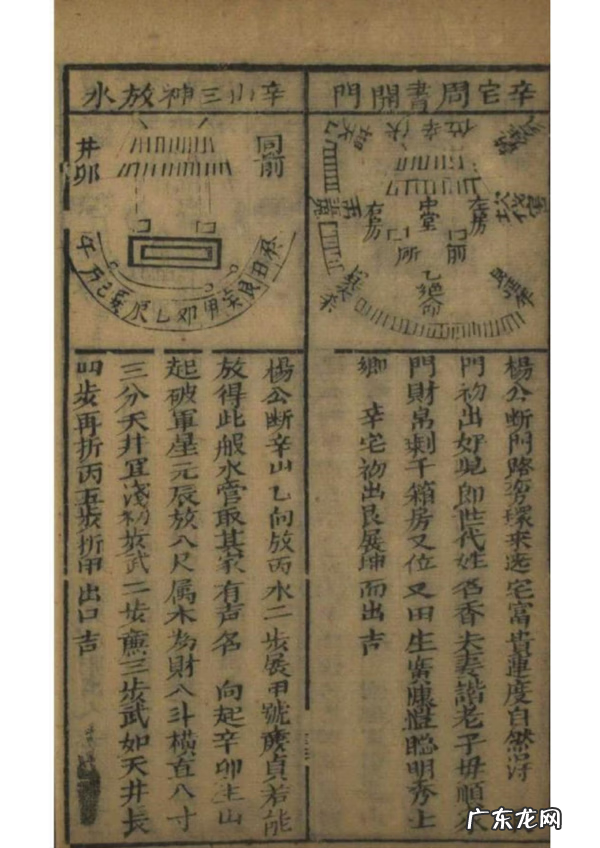 辛宅周書開門
伏辛位
左房
中堂
右房
前
所
乙絕命
楊公断門路弯環來遶宅富貴連度自然浔
門初出好見郎世代姓名香夫妻諧老子母順衣
門財帛剩千箱房又位又田生畜聰明秀士
鄉 辛宅初出艮展坤而出吉
辛山三神放水
同前
井卯
楊公断辛山乙向放丙水二步展甲號廉貞若能
放得此般水管取其家有声名 向起辛卯生山
起破軍星元辰放八尺属木為財八斗橫直八寸
三分天井宜淺初步武二步廉三步武如天井長
四步再折丙五步折甲出口吉
广东龙网